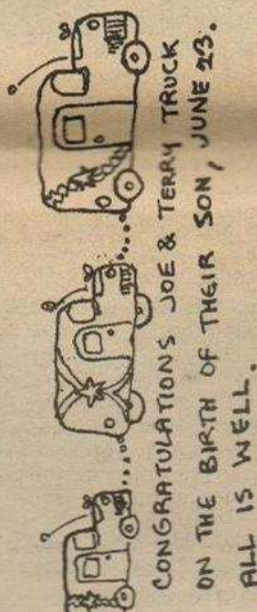 CONGRATULATIONS JOE & TERRY TRUCK
ON THE BIRTH OF THEIR SON, JUNE 23.
ALL IS WELL.